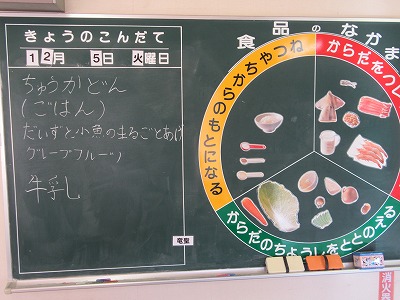 きょうのこんだて
12月 5日 火曜日
ちゅうかどん
(ごはん)
だいずと小魚のまるごとあげ
グレープフルーツ
牛乳
竜聖
食品のなかま
からだをつ
ちからやねつ
のもとになる
からだのちょうしをととのえる
消火器